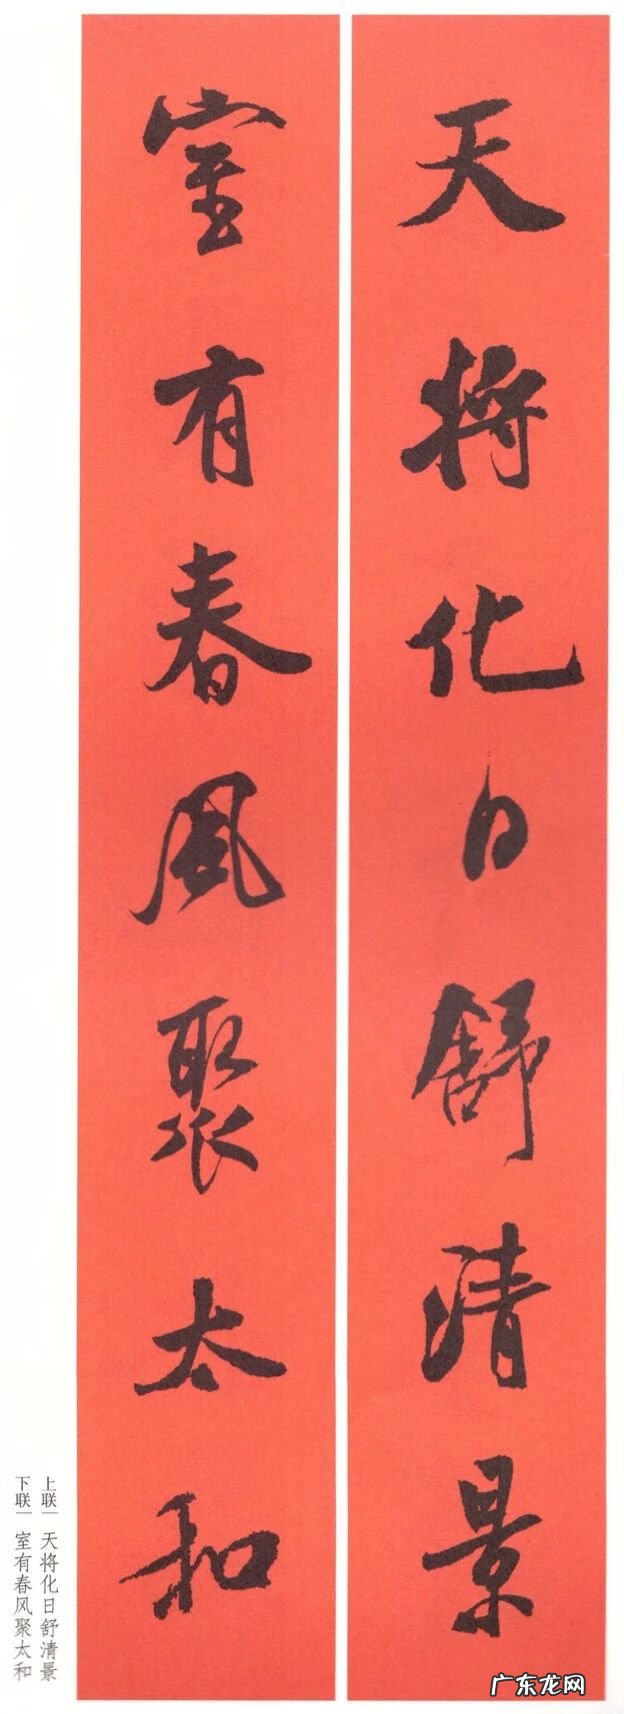 天将化日舒清景
室有春风聚太和
上联｜天将化日舒清景
下联｜室有春风聚太和
广东龙网